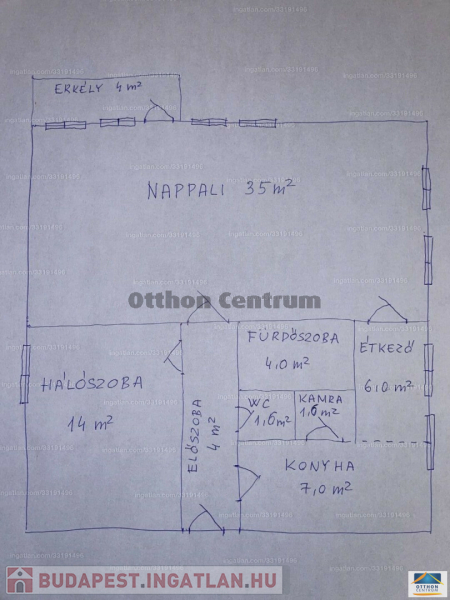 ERKÉLY 4 m²
NAPPALI 35 m²
Otthon Centrum
FÜRDŐSZOBA
4,0 m²
ÉTKEZŐ
6,0 m²
HÁLÓSZOBA
14 m²
ELŐSZOBA
4 m²
WC
1,6 m²
KAMRA
1,6 m²
KONYHA
7,0 m²
BUDAPEST.INGATLAN.HU
OTTHON
CENTRUM